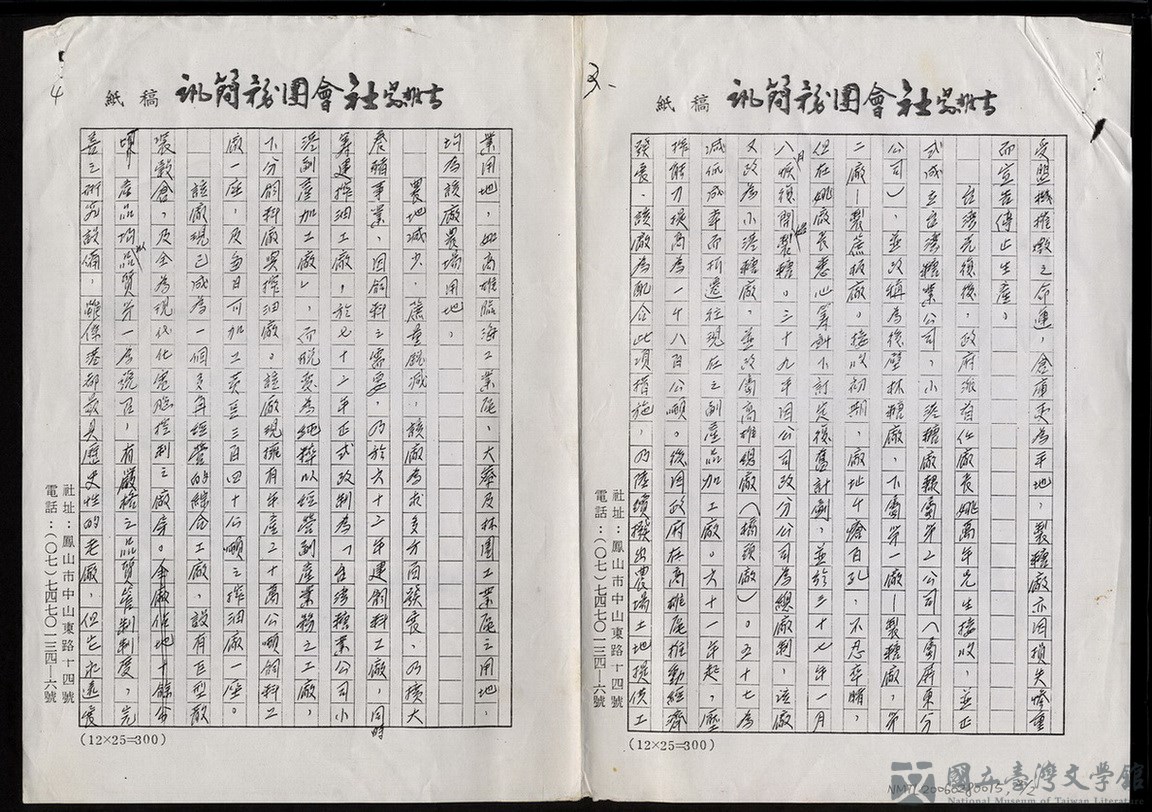 3.
吉報出 社會團務簡訊 稿紙
受盟機摧燬之命運,倉庫更為平地,製糖廠亦因損失嚴重
而宣告停止生產。
台灣光復後,政府派首任廠長姚萬年先生接收,並正
式成立台灣糖業公司,小港糖廠類第二公司(屬屏東分
公司),並改稱為後壁林糖廠,下屬第一廠—製糖廠,第
二廠—製蔗板廠。接收初期,廠址千瘡百孔,不忍卒睹,
但在姚廠長悉心籌劃下計定復舊計劃,並於三十七年一月
八月恢復開始製糖。三十九年因公司改分公司為總廠制,該廠
又改為小港糖廠,並改屬高雄總廠(橋頭廠)。五十七年為
減低成本而拆遷往現在之副產品加工廠。六十一年起,壓
榨能力提高為一千八百公噸。後因政府在高雄尾推動經濟
發展,該廠為配合此項措施,乃陸續撥出農場土地提供工
社址:鳳山市中山東路十四號
電話:(〇七)七四七〇一三四—六號
(12×25=300)
4
社會團務簡訊 稿紙
業用地,如高雄臨海工業尾,大寮及林園工業尾之用地,
均為該廠農場用地。
農地減少,蔗量銳減,該廠為求多方面發展,乃擴大
養豬事業,因飼料之需要,乃於六十二年建飼料工廠,同時
籌建榨油工廠,於七十二年正式改制為「台灣糖業公司小
港副產加工廠」,而脫變為純粹以經營副產業務之工廠,
下分飼料廠與榨油廠。該廠現擁有年產二十萬公噸飼料工
廠一座,及每日可加工黃豆三百四十公噸之榨油廠一座。
該廠現已成為一個多角經營的綜合工廠,設有巨型散
裝穀倉,及全為現代化電腦控制之廠房。全廠佔地十餘公
頃,產品均以品質第一為號召,有嚴格之品質管制制度,完
善之研究設備,雖係港都最具歷史性的老廠,但它永遠長
社址:鳳山市中山東路十四號
電話:(〇七)七四七〇一三四—六號
(12×25=300)
國立臺灣文學館
National Museum of Taiwan Literature